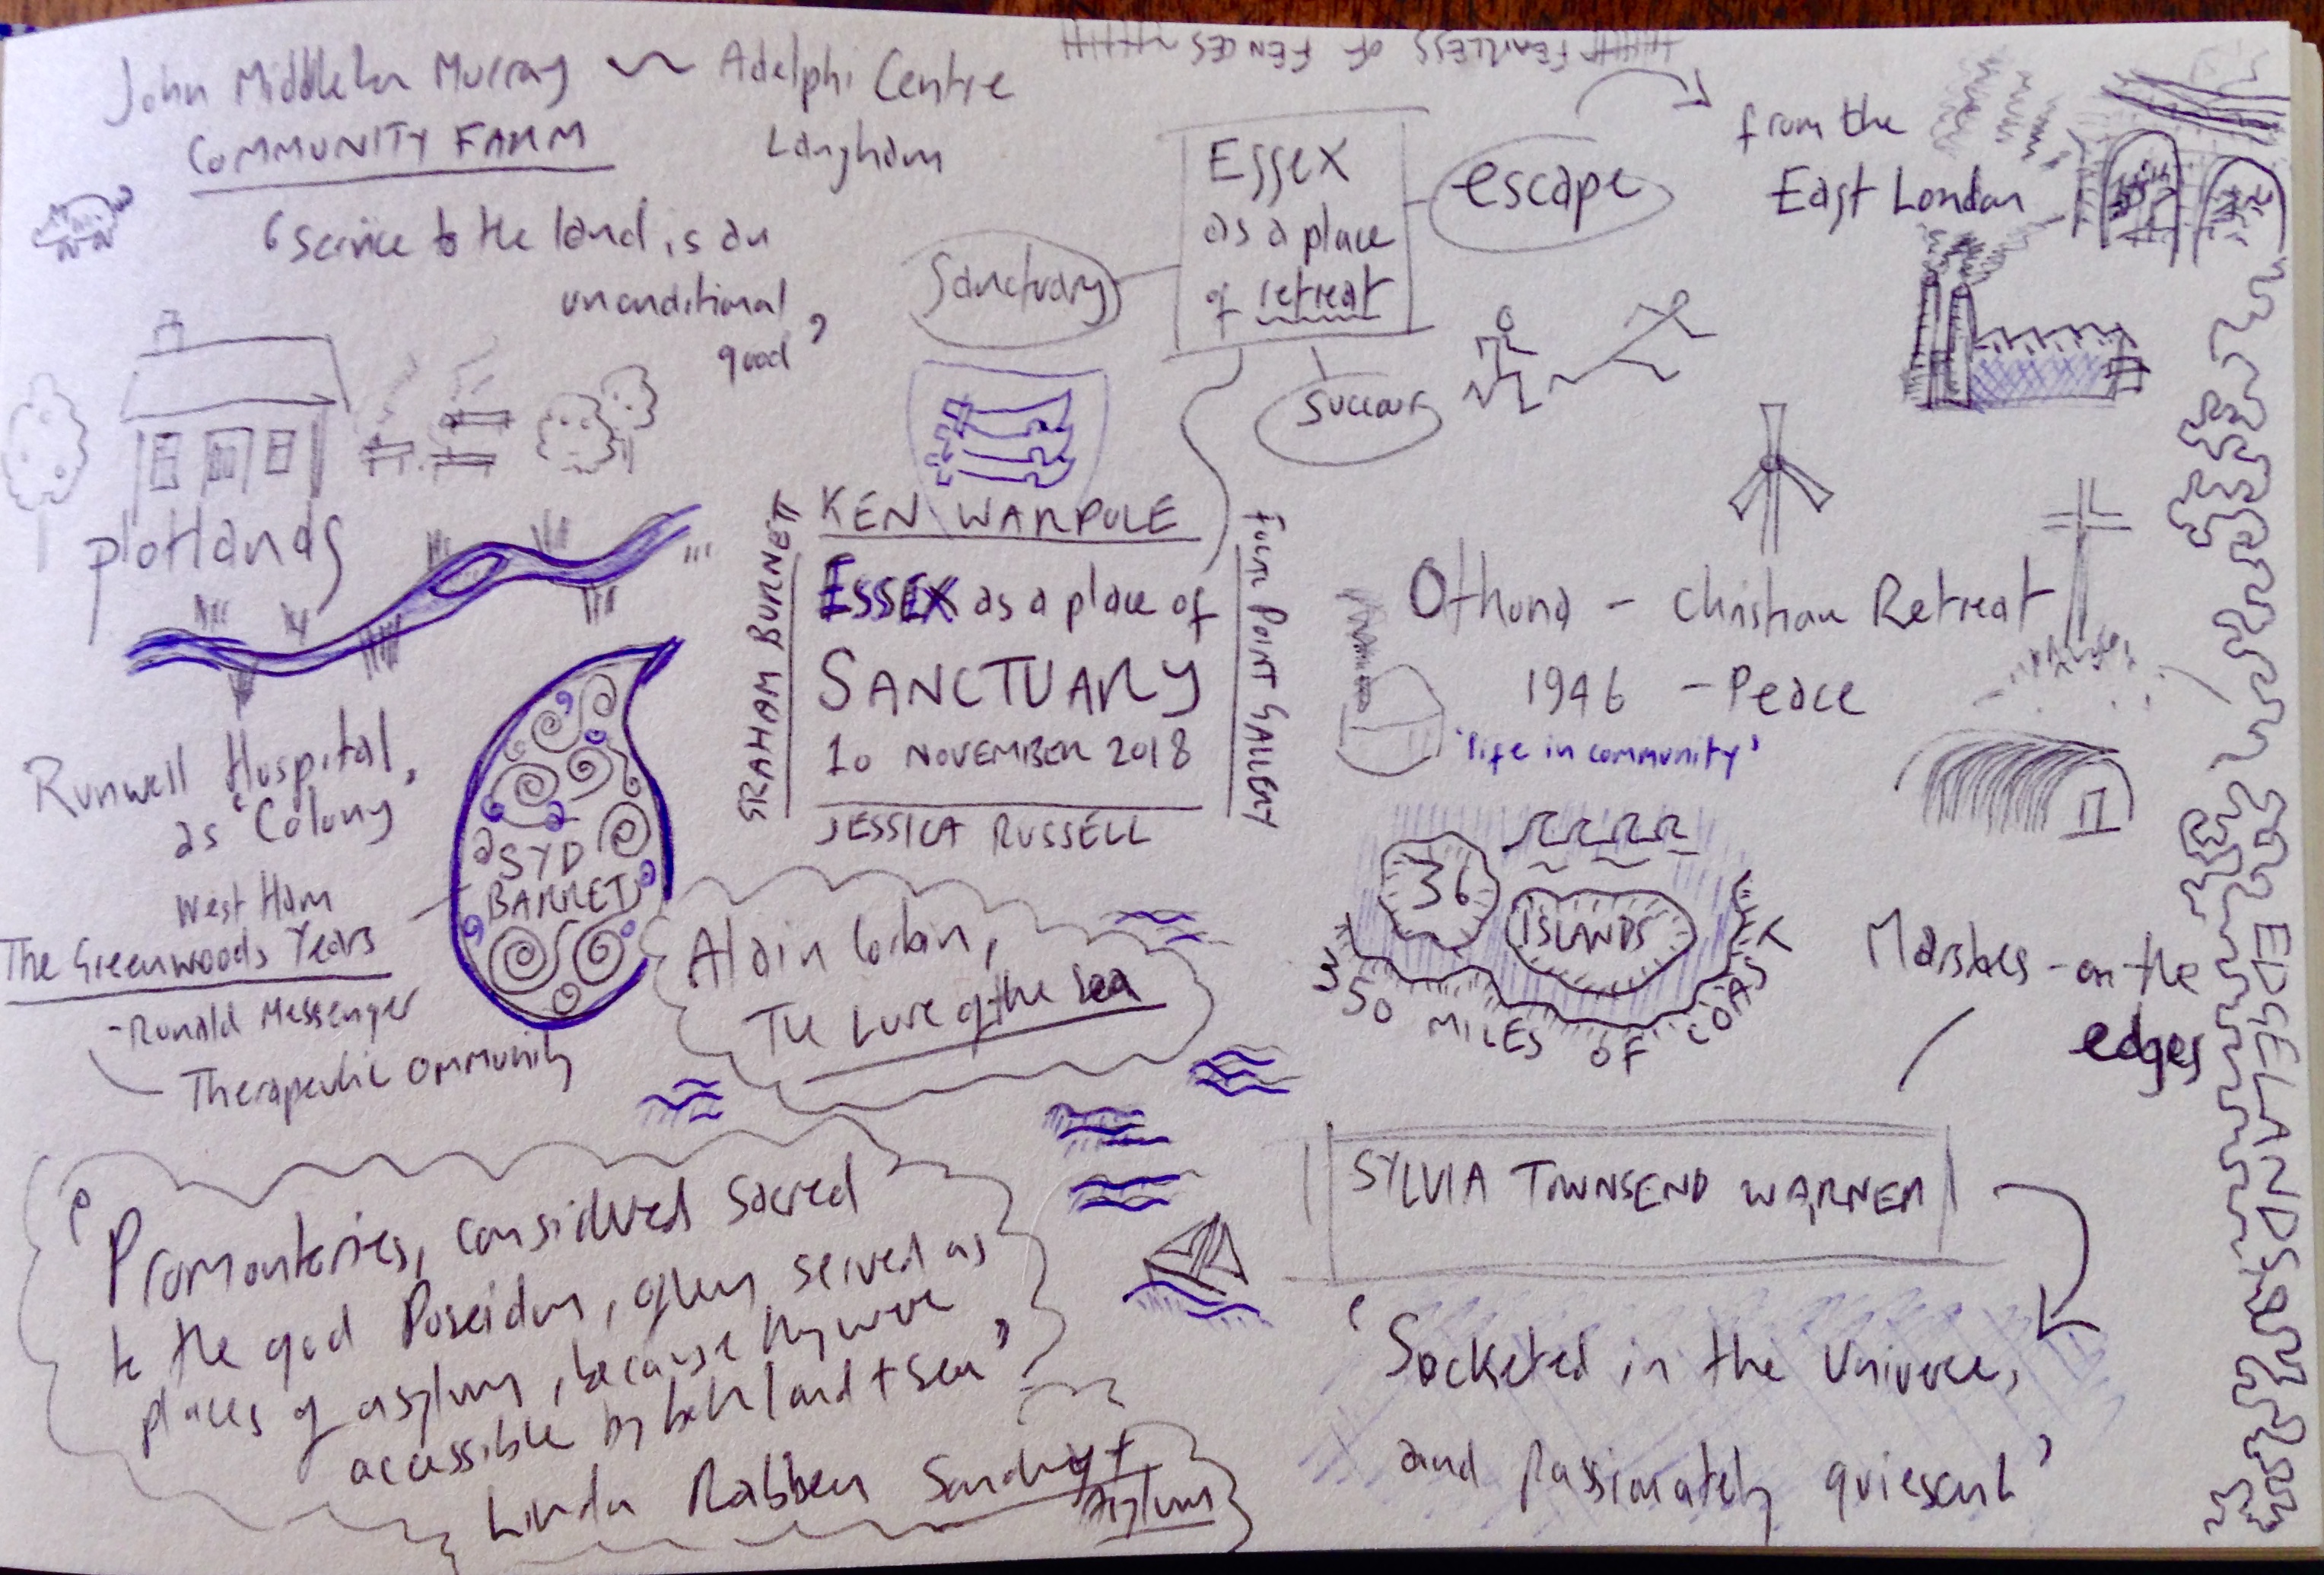 John Middleton Murray ~ Adelphi Centre
Langham
COMMUNITY FARM
'Service to the land is an
unconditional
good'
FEARLESS OF FENCES
Essex
as a place
of retreat
Sanctuary
escape
succour
from the
East London
plotlands
KEN WARPOLE
ESSEX as a place of
SANCTUARY
10 NOVEMBER 2018
JESSICA RUSSELL
GRAHAM BURNETT
FOCAL POINT GALLERY
Othona - Christian Retreat
1946 - Peace
'life in community'
Runwell Hospital
as 'Colony'
West Ham
The Greenwoods Years
- Ronald Messenger
Therapeutic community
SYD
BARRET
Alain Corbin,
The Lure of the Sea
36
ISLANDS
350 MILES OF COAST
Marshes - on the
edges
EDGELANDS
SYLVIA TOWNSEND WARNER
'Socketed in the Universe,
and passionately quiescent'
'Promonteries, considered sacred
to the god Poseidon, often served as
places of asylum, because they were
accessible by both land + sea'
Linda Rabben Sanctuary +
Asylum